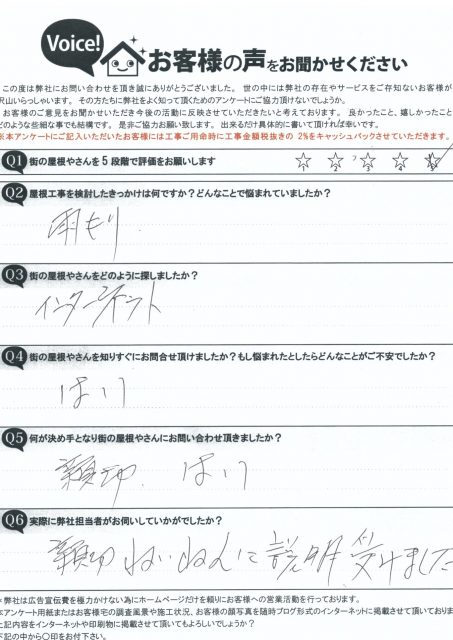 Voice!
お客様の声をお聞かせください
この度は弊社にお問い合わせを頂き誠にありがとうございました。 世の中には弊社の存在やサービスをご存知ないお客様が
沢山いらっしゃいます。 その方たちに弊社をよく知って頂くためのアンケートにご協力頂けないでしょうか。
お客様のご意見をお聞かせいただき今後の活動に反映させていただきたいと考えております。 良かったこと、嬉しかったこと
どのような些細な事でも結構です。 是非ご協力お願い致します。 出来るだけ具体的に書いて頂ければ幸いです。
※本アンケートにご記入いただいたお客様には工事ご用命時に工事金額税抜きの 2%をキャッシュバックさせていただきます。
Q1 街の屋根やさんを5段階で評価をお願いします
1 2 3 4 5
Q2 屋根工事を検討したきっかけは何ですか？どんなことで悩まれていましたか？
雨もり
Q3 街の屋根やさんをどのように探しましたか？
インターネット
Q4 街の屋根やさんを知りすぐにお問合せ頂けましたか？もし悩まれたとしたらどんなことがご不安でしたか？
はい
Q5 何が決め手となり街の屋根やさんにお問い合わせ頂きましたか？
はい
Q6 実際に弊社担当者がお伺いしていかがでしたか？
ねいねんに説明受けました
＊弊社は広告宣伝費を極力かけない為にホームページだけを頼りにお客様への営業活動を行っております。
本アンケート用紙またはお客様宅の調査風景や施工状況、お客様の顔写真を随時ブログ形式のインターネットに掲載させて頂いております
上記内容をインターネットや印刷物に掲載させて頂いてもよろしいでしょうか？
下記の中から〇印をお付下さい。